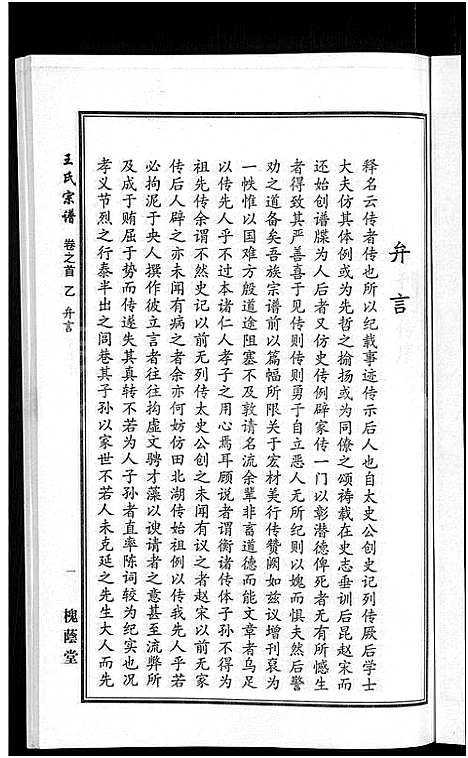 弁言
释名云传者传也所以纪载事迹传示后人也自太史公创史记列传厥后学士
大夫仿其体例或为先哲之揄扬或为同僚之颂祷载在史志垂训后昆赵宋而
还始创谱牒为人后者又仿史传例辟家传一门以彰潜德俾死者有所憾生
者得致其严善喜于见传则传则勇于自立恶人无所纪则以愧而惧夫然后警
劝之道备矣吾族宗谱前以篇幅所限关于宏材美行传赞阙如兹议增刊裒为
一帙惟以国难方殷道途阻塞不及敦请名流余辈非畜道德而能文章者乌足
以传先人乎不过本诸仁人孝子之用心焉耳顾说者谓衡诸传体子孙不得为
祖先传余谓不然史记以前无列传太史公创之未闻有议之者赵宋以前无家
传后人辟之亦未闻有病之者余亦何妨仿田北湖传始祖例以传我先人乎若
必拘泥于央人撰作彼立言者往往拘虚文骋才藻以谀请者之意甚至流弊所
及成于贿屈于势而传遂失其真转不若为人子孙者直率陈词较为纪实也况
孝义节烈之行泰半出之闾巷其子孙以家世不若人未克延之先生大人而先
王氏宗谱 卷之首 乙 弁言
一
槐蔭堂